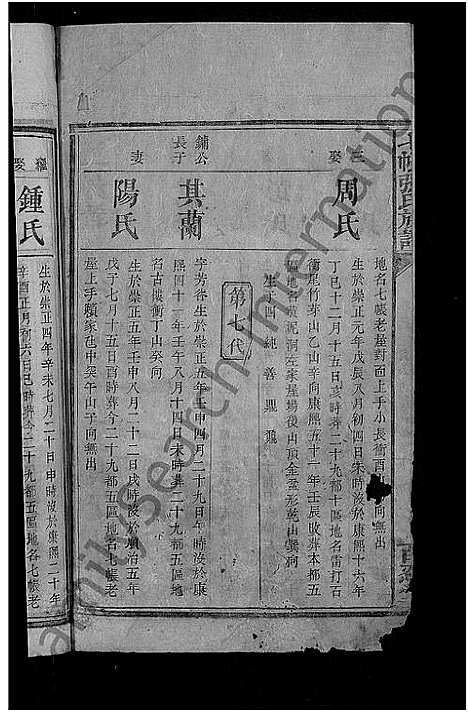 七帳張氏族譜
地名七帳老屋對面上手小長衝酉山卯向無出
三娶
周氏
生於崇正元年戊辰八月初四日未時沒於康熙十六年
丁巳十二月十五日亥時葬二十九都十區地名雷打石
衝尾竹芽山乙山辛向康熙五十一年壬辰改葬本都五
區地名黃泥洞左家屋場後山頂金釜形乾山巽向
生子四 純 善 颺 飛
第七代
鋪公長子
其蘭
字芳谷生於崇正五年壬申四月二十九日午時沒於康
熙四十一年壬午八月十四日未時葬二十九都五區地
名古樓衝丁山癸向
妻
陽氏
生於崇正五年壬申八月二十二日戌時沒於順治五年
戊子七月十五日酉時葬今二十九都五區地名七帳老
屋上手顏家屯中癸午山子向無出
繼娶
鍾氏
生於崇正四年辛未七月二十日申時沒於康熙二十年
辛酉正月初六日巳時葬今二十九都五區地名七帳老
familysearch international